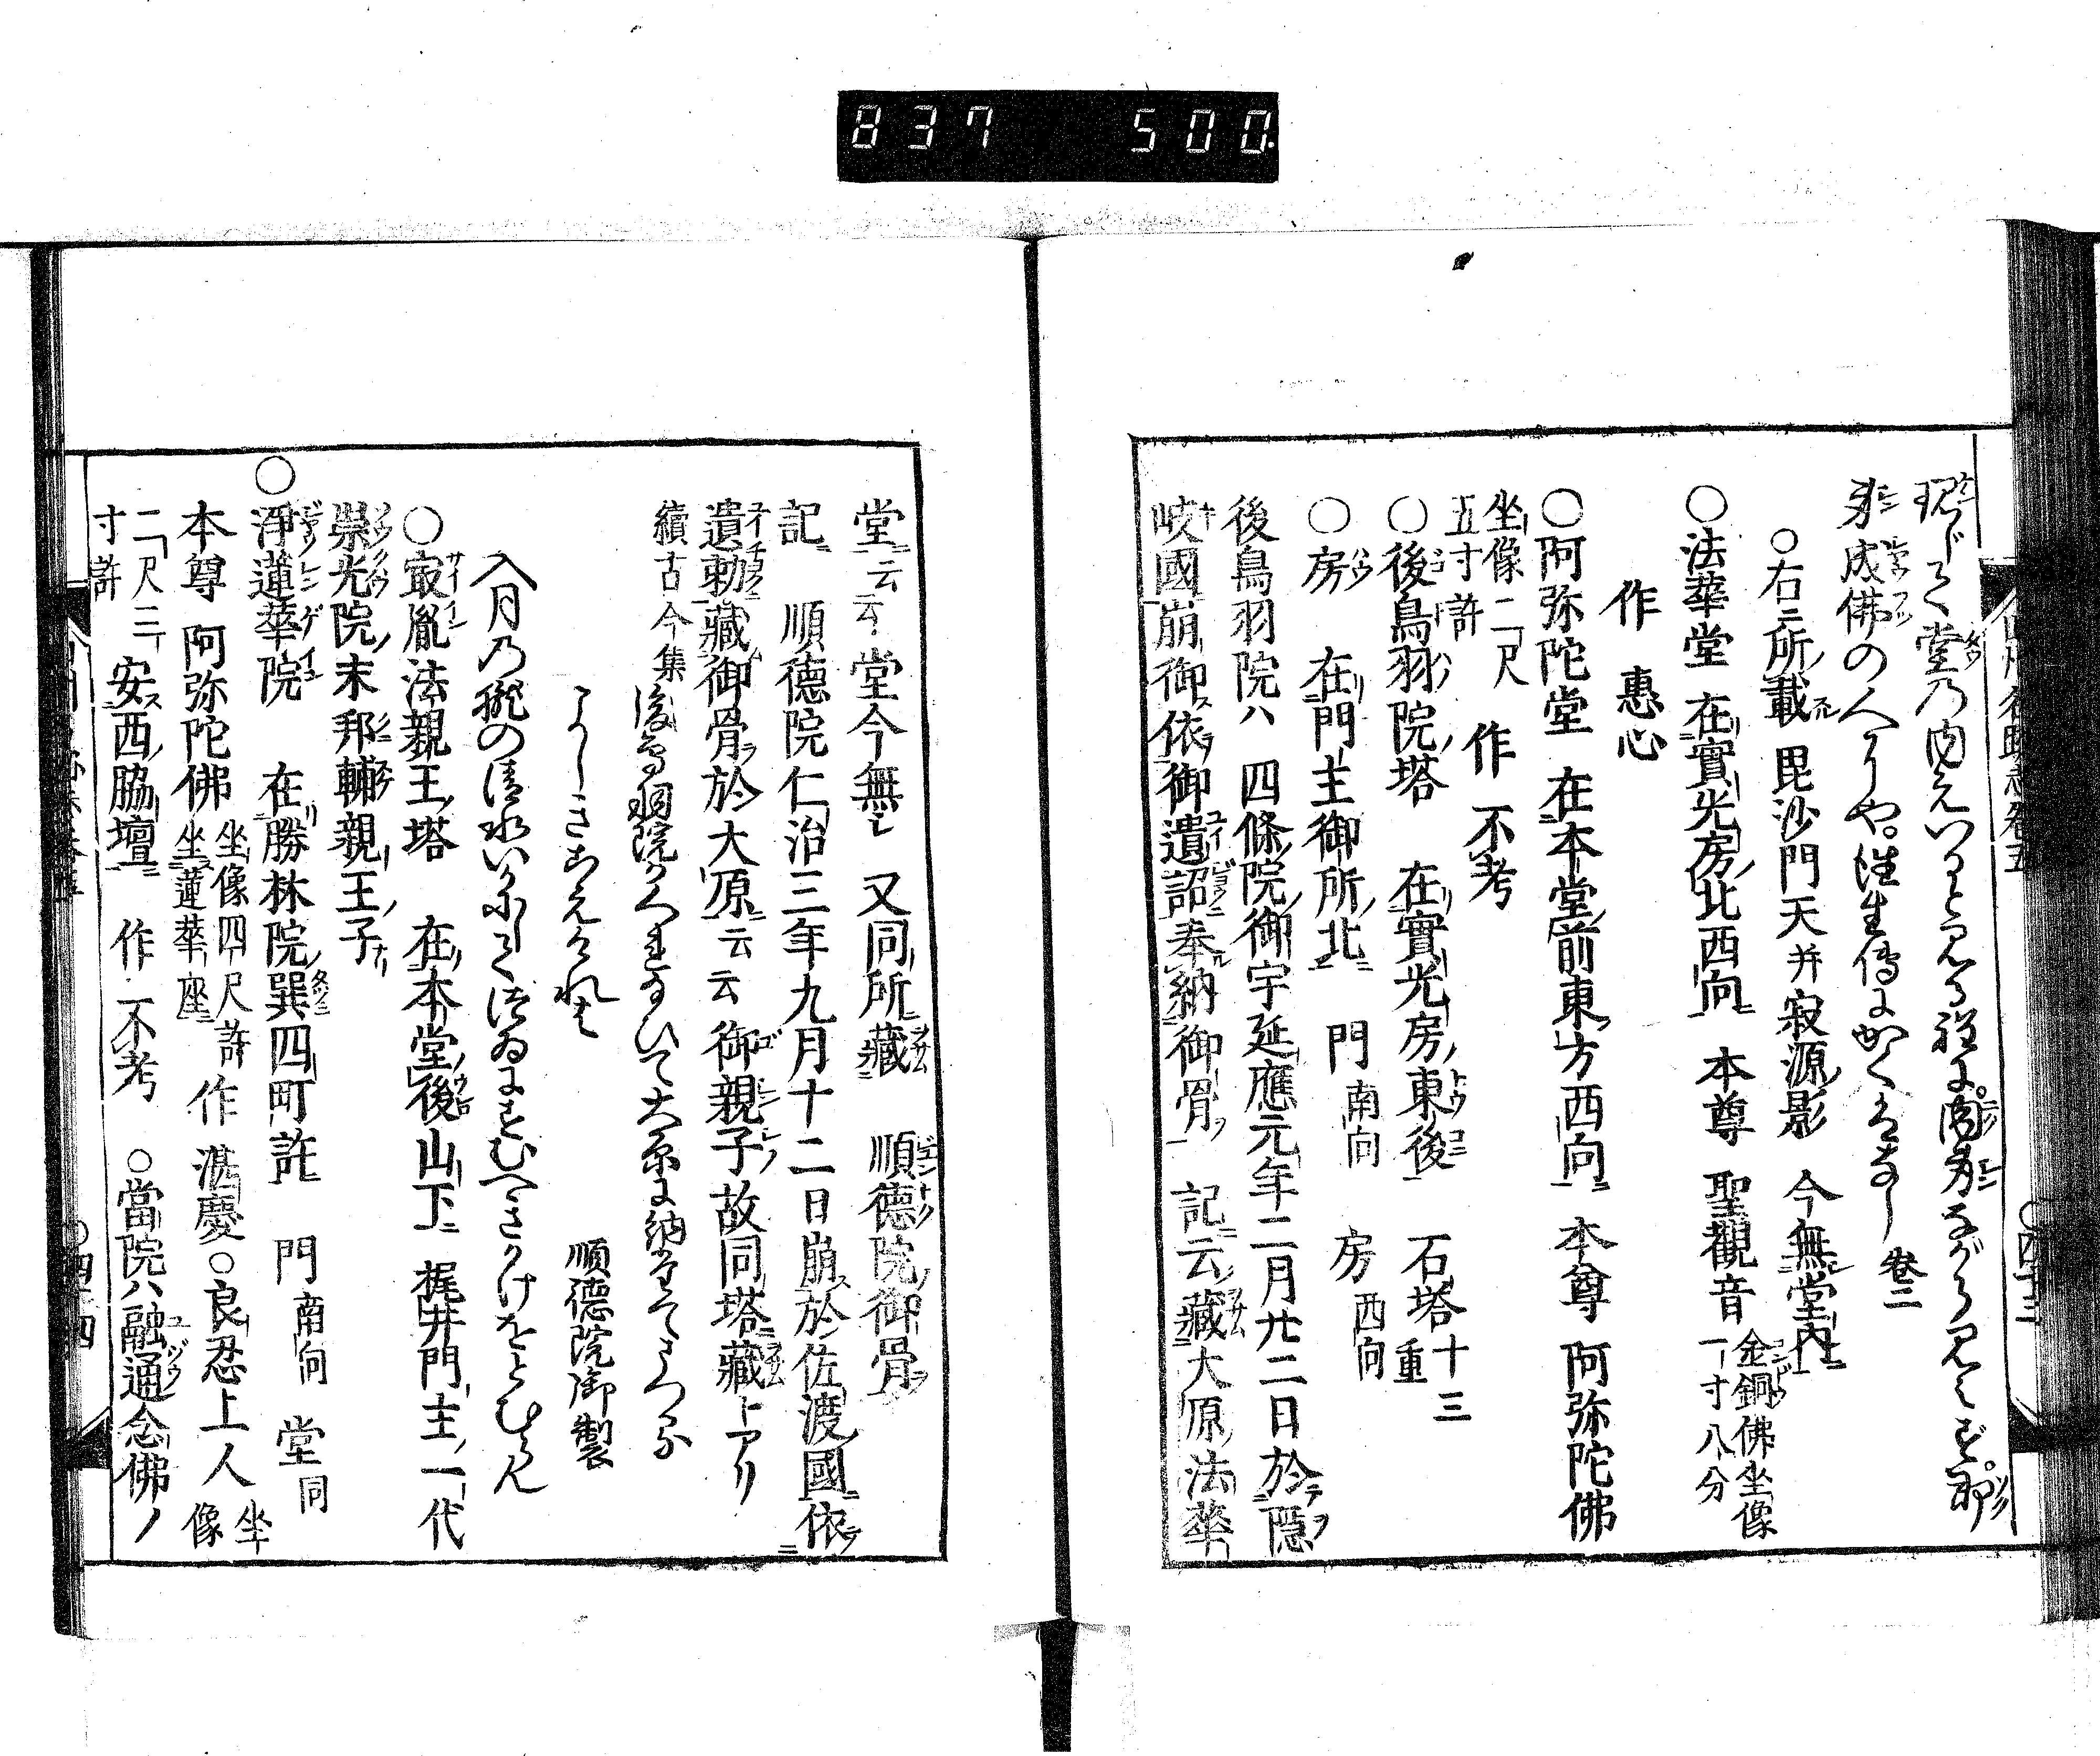 837 500
現じて堂乃内えいると見る程に肉身ながら見えず。即
身成佛の人にや。往生傳にかくるなし 卷二
○右ニ所ノ載ル 毘沙門天并寂源ノ影 今無堂内ニ
○法華堂 在實光房ノ北西向 本尊 聖觀音 金銅佛坐像一寸八分
作 惠心
○阿弥陀堂 在本堂ノ前東ノ方西向 本尊 阿弥陀佛
坐像二尺五寸許 作 不考
○後鳥羽院ノ塔 在實光房ノ東後 石塔十三重
○房 在門主御所ノ北 門南向 房西向
後鳥羽院ハ 四條院ノ御宇延應元年二月廿二日於テ隱
岐國崩御ス依テ御遺詔奉納御骨ヲ 記云藏大原法華
堂云云 堂今無シ 又同所ニ藏 順德院ノ御骨ヲ
記 順德院仁治三年九月十二日崩ス於佐渡國依テ
遺勅ニ藏御骨ヲ於大原ニ云云 御親子故同塔ニ藏トアリ
續古今集 後鳥羽院かくれ給ひて大原に納
よし きこえければ 順德院御製
入月の朧の清水いかにして つゐにすむへきかけをとむらん
○最胤法親王ノ塔 在本堂ノ後山下ニ 梶井門主ノ一代
崇光院ノ末邦輔親王ノ子ナリ
○淨蓮華院 在勝林院ノ巽四町許ニ 門南向 堂同
本尊 阿弥陀佛 坐像四尺許坐ス蓮華座ニ 作 湛慶○良忍上人 坐像
二尺三寸許 安ス西ノ脇壇ニ 作 不考 ○當院ハ融通念佛ノ